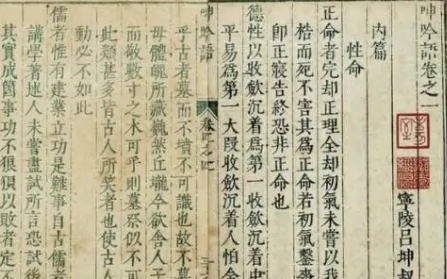 呻吟語卷之一
寧陵呂坤叔
內篇
性命
正命者完却正理全却初氣未嘗以我
桎而死不害其爲正命若初氣鑿喪
卽正寢告終恐非正命也
德性以收斂沉着爲第一收斂沉着中
平易爲第一大段收斂沉着人怕含
呻吟語
卷之
乎古者墓而不墳不可識也故不墓
母體魄所藏巍然丘壠今欲舍人子
而敬數寸之木可乎則墓祭似不可
此類甚多皆古人所笑者也使古人
動必不如此
儒者惟有建業立功是難事自古儒者
講學著述人未嘗盡試所言恐試後
其實成箇事功不狼狽以敗者定不